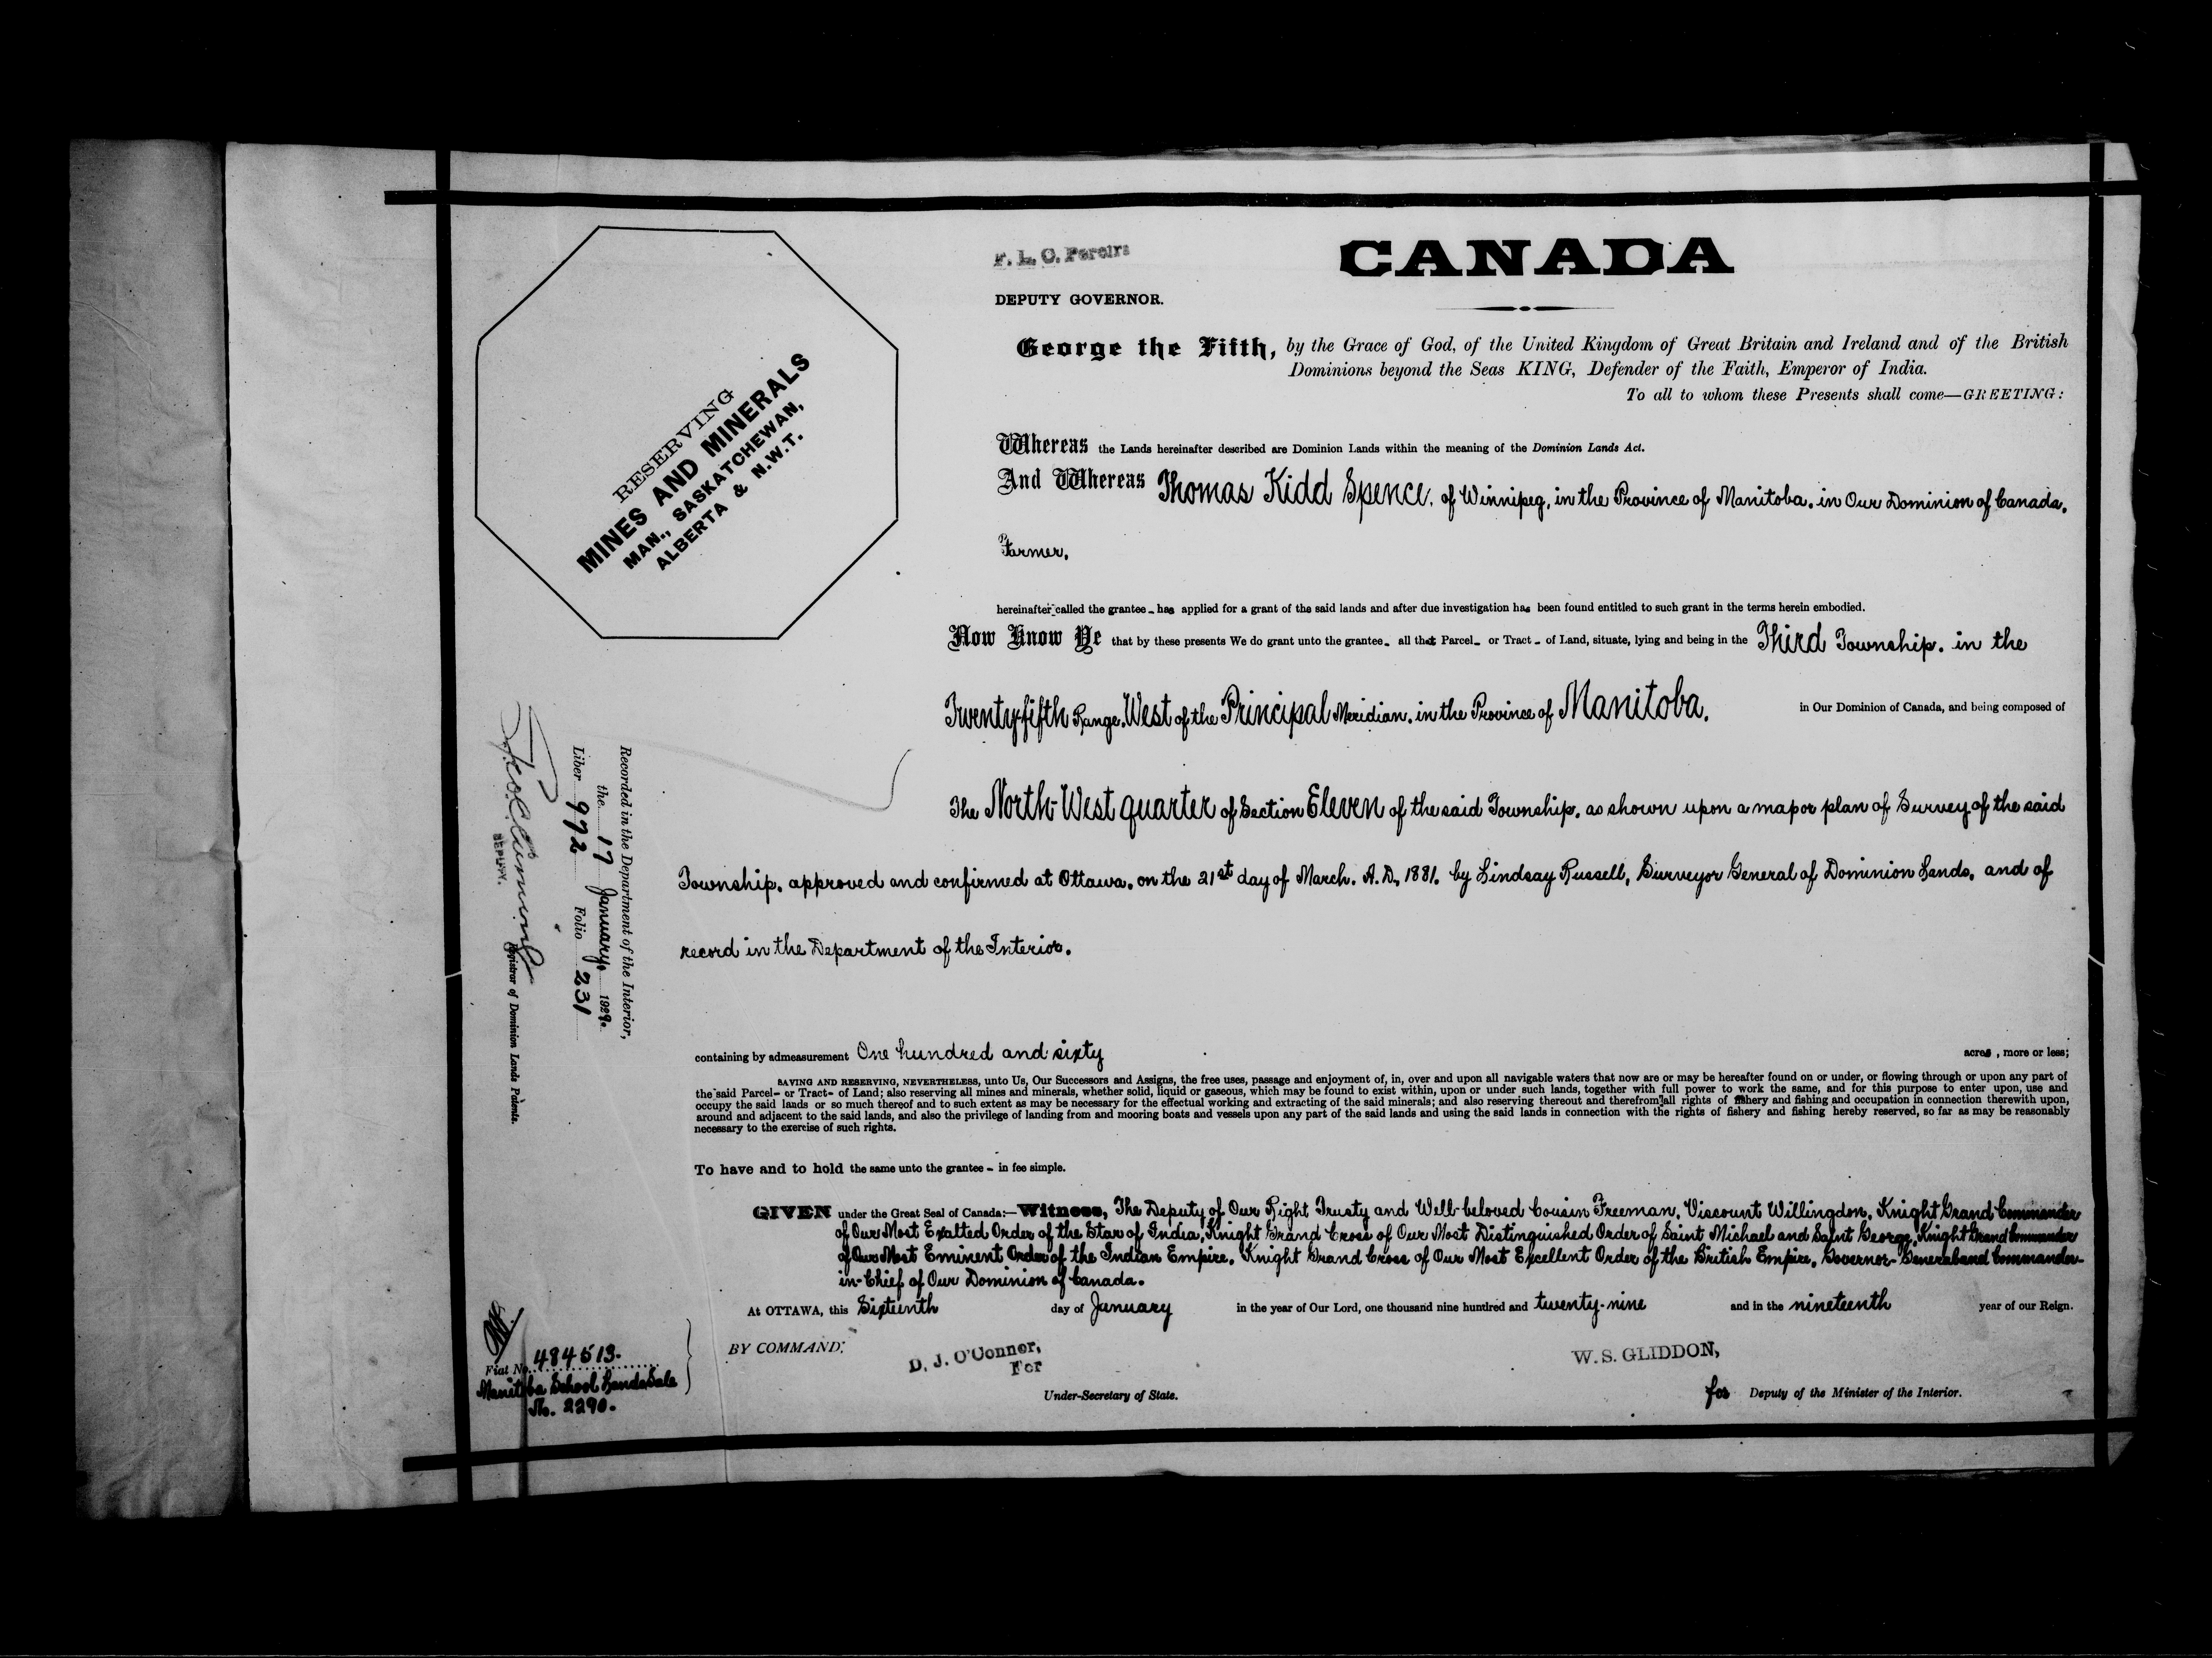 F. L. C. Pereira
DEPUTY GOVERNOR.
CANADA
George the Fifth, by the Grace of God, of the United Kingdom of Great Britain and Ireland and of the British
Dominions beyond the Seas KING, Defender of the Faith, Emperor of India.
To all to whom these Presents shall come—GREETING:
RESERVING
MINES AND MINERALS
MAN., SASKATCHEWAN,
ALBERTA & N.W.T.
Whereas the Lands hereinafter described are Dominion Lands within the meaning of the Dominion Lands Act.
And Whereas Thomas Kidd Spence, of Winnipeg, in the Province of Manitoba, in Our Dominion of Canada,
Farmer,
hereinafter called the grantee - has applied for a grant of the said lands and after due investigation has been found entitled to such grant in the terms herein embodied.
Now Know Ye that by these presents We do grant unto the grantee - all that Parcel - or Tract - of Land, situate, lying and being in the Third Township, in the
Twenty-fifth Range, West of the Principal Meridian, in the Province of Manitoba, in Our Dominion of Canada, and being composed of
The North-West quarter of Section Eleven of the said Township, as shown upon a map or plan of Survey of the said
Township, approved and confirmed at Ottawa, on the 21st day of March, A.D. 1881, by Lindsay Russell, Surveyor General of Dominion Lands, and of
record in the Department of the Interior.
Recorded in the Department of the Interior,
the 17 January, 1929.
Liber 992 Folio 231
DEPUTY.
Registrar of Dominion Lands Patents.
containing by admeasurement One hundred and sixty acres, more or less;
SAVING AND RESERVING, NEVERTHELESS, unto Us, Our Successors and Assigns, the free uses, passage and enjoyment of, in, over and upon all navigable waters that now are or may be hereafter found on or under, or flowing through or upon any part of
the said Parcel - or Tract - of Land; also reserving all mines and minerals, whether solid, liquid or gaseous, which may be found to exist within, upon or under such lands, together with full power to work the same, and for this purpose to enter upon, use and
occupy the said lands or so much thereof and to such extent as may be necessary for the effectual working and extracting of the said minerals; and also reserving thereout and therefrom all rights of fishery and fishing and occupation in connection therewith upon,
around and adjacent to the said lands, and also the privilege of landing from and mooring boats and vessels upon any part of the said lands and using the said lands in connection with the rights of fishery and fishing hereby reserved, so far as may be reasonably
necessary to the exercise of such rights.
To have and to hold the same unto the grantee - in fee simple.
GIVEN under the Great Seal of Canada:—Witness, The Deputy of Our Right Trusty and Well-beloved Cousin Freeman, Viscount Willingdon, Knight Grand Commander
of Our Most Exalted Order of the Star of India, Knight Grand Cross of Our Most Distinguished Order of Saint Michael and Saint George, Knight Grand Commander
of Our Most Eminent Order of the Indian Empire, Knight Grand Cross of Our Most Excellent Order of the British Empire, Governor-General and Commander-
in-Chief of Our Dominion of Canada.
At OTTAWA, this Sixteenth day of January in the year of Our Lord, one thousand nine hundred and twenty-nine and in the nineteenth year of our Reign.
BY COMMAND:
D. J. O'Connor,
For
Under-Secretary of State.
W. S. GLIDDON,
for Deputy of the Minister of the Interior.
Fiat No. 484513.
Manitoba School Lands Sale
No. 2290.